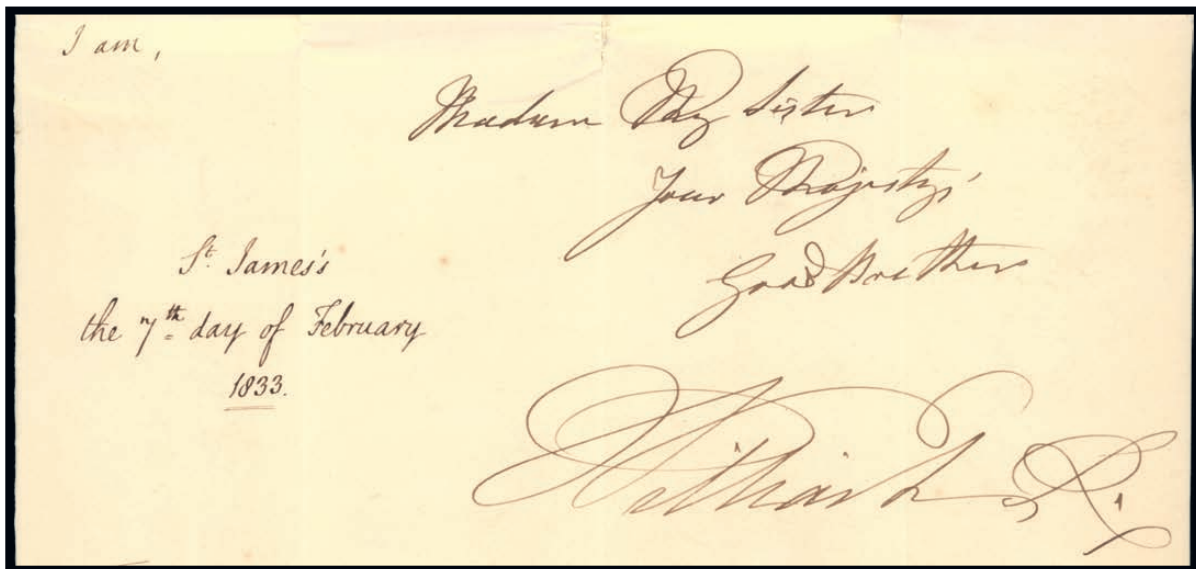 I am,
Madam My Sister
Your Majesty's
Good Brother
St. James's
the 7th day of February
1833.
William R.